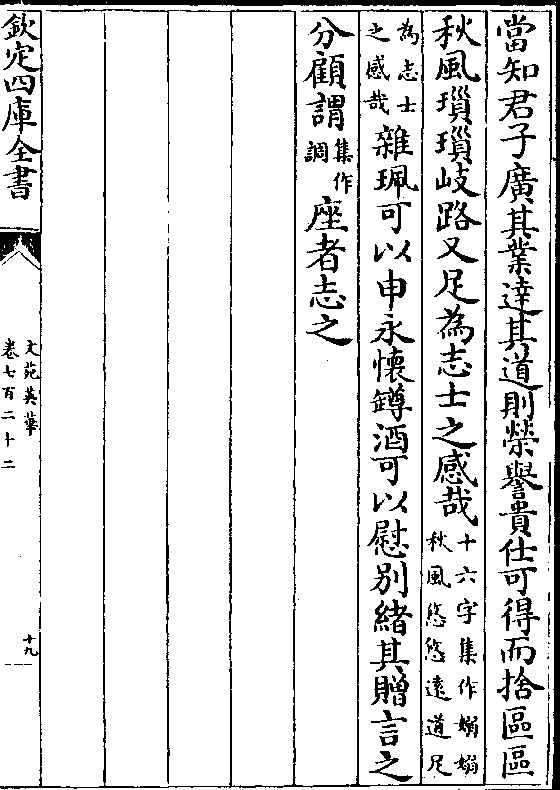 當知君子廣其業達其道則榮譽貴仕可得而捨區區
秋風瑣瑣岐路又足為志士之感哉十六字集作嫋嫋
秋風悠悠遠道足
為志士
之感哉
雜珮可以申永懷鐏酒可以慰別緒其贈言之
分顧謂集作
調
座者志之
欽定四庫全書
文苑英華
卷七百二十二
十九